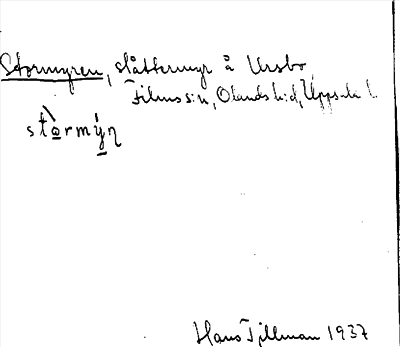 Stormyren, slåttermyr å Ursbo,
Films s:n, Olands hd, Uppsala l.
stòrmýn
Hans Tjillman 1937